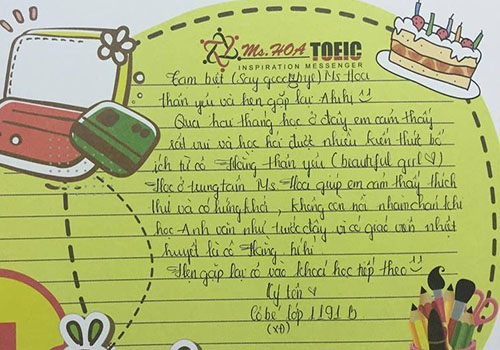 Ms.HOA TOEIC
INSPIRATION MESSENGER
Tạm biệt (Say goodbye) Ms Hoa
thân yêu và hẹn gặp lại Ahihi
Qua hai tháng học ở đây em cảm thấy
rất vui và học hỏi được nhiều kiến thức bổ
ích từ cô Hằng thân yêu (beautiful girl ♡)
Học ở trung tâm Ms Hoa giúp em cảm thấy thích
thú và có hứng khởi, không còn nơi nhàm chán khi
học Anh văn như trước đây vì có giáo viên nhiệt
huyết là cô Hằng hihi
Hẹn gặp lại cô vào khoá học tiếp theo
Ký tên ♡
Cô bé lớp 1191 B
(XĐ)